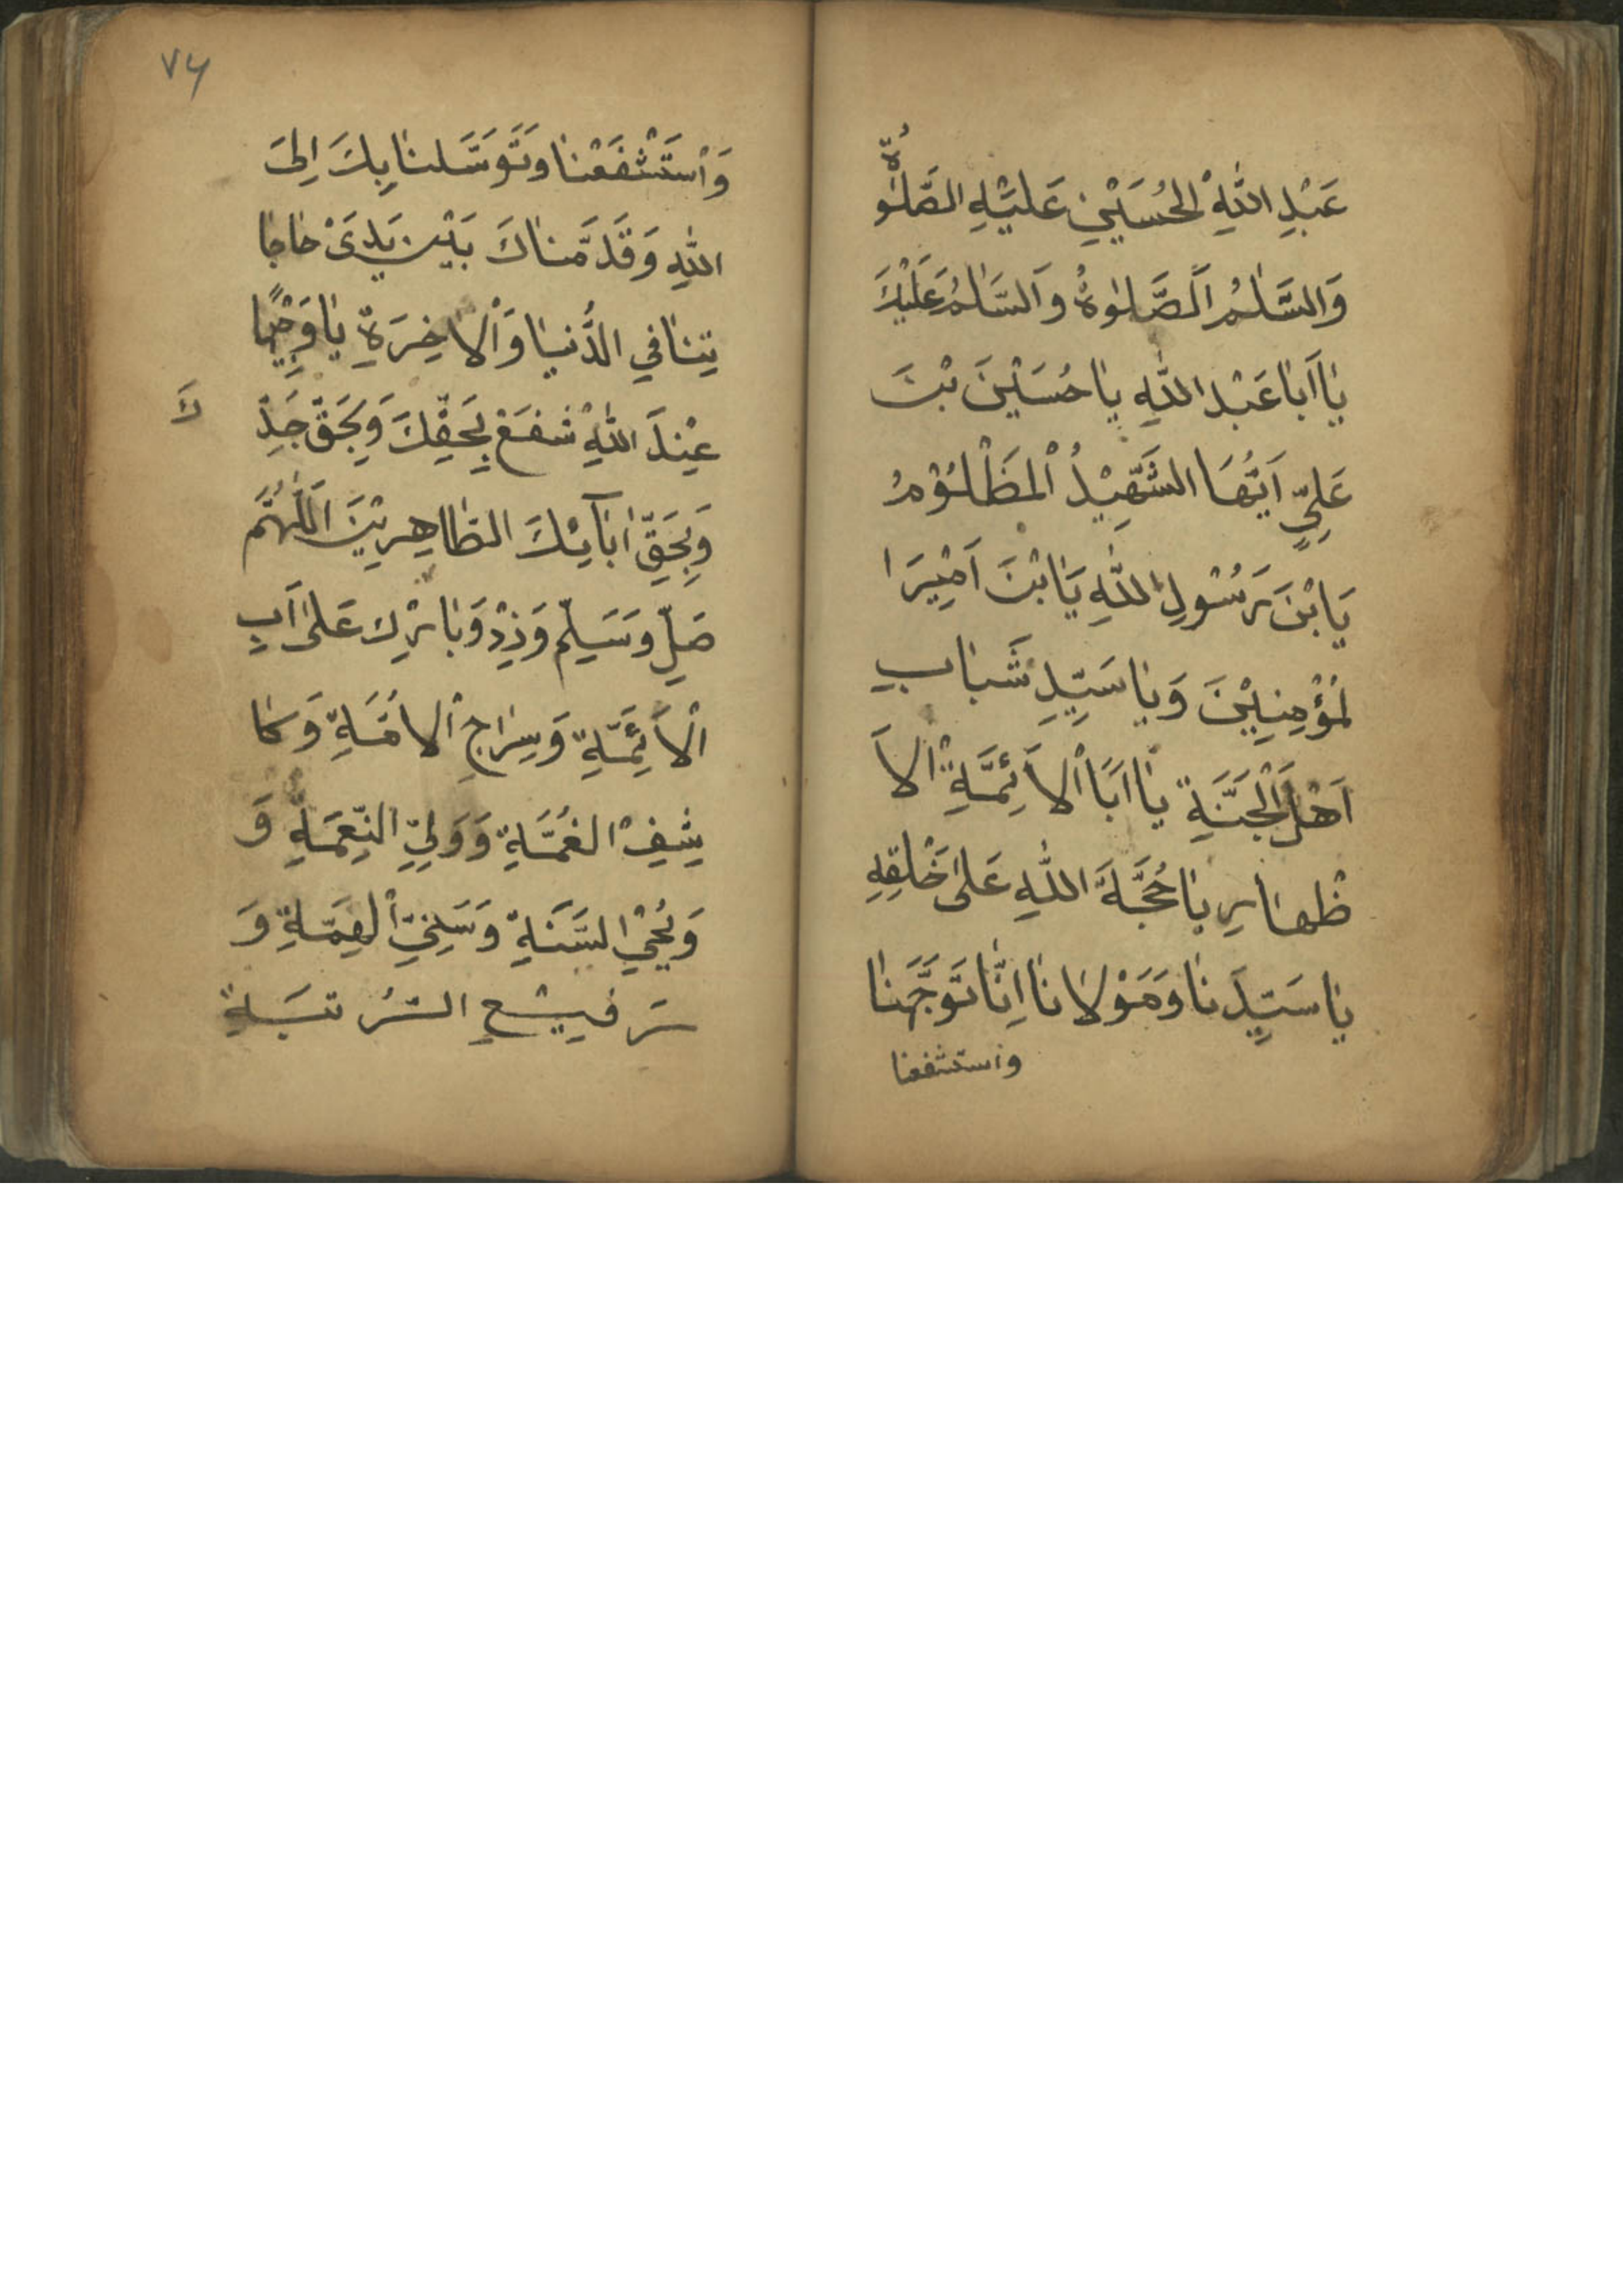 عَبْدِ اللهِ الْحُسَيْنِ عَلَيْهِ الصَّلٰوةُ
وَالسَّلٰمُ اَلصَّلٰوةُ وَالسَّلٰمُ عَلَيْكَ
يٰا اَبٰا عَبْدِ اللهِ يٰا حُسَيْنَ بْنَ
عَلِيٍّ اَيُّهَا الشَّهِيْدُ الْمَظْلُوْمُ
يَابْنَ رَسُوْلِ اللهِ يَابْنَ اَمِيْرَا
لْمُؤْمِنِيْنَ وَيٰا سَيِّدِ شَبٰابِ
اَهْلِ الْجَنَّةِ يٰا اَبَا الْاَئِمَّةِ الْاَ
طْهٰارِ يٰا حُجَّةَ اللهِ عَلىٰ خَلْقِهِ
يٰا سَيِّدَنٰا وَمَوْلٰانٰا اِنّٰا تَوَجَّهْنٰا
واستشفعنا
٧٤
وَاسْتَشْفَعْنٰا وَتَوَسَّلنٰا بِكَ اِلىَ
اللهِ وَقَدَّمْنٰاكَ بَيْنَ يَدَىْ حٰاجٰا
تِنٰا فِي الدُّنْيٰا وَالْاٰخِرَةِ يٰا وَجِيْهًا
عِنْدَ اللهِ اشْفَعْ بِحَقِّكَ وَبِحَقِّ جَدِّ
كَ
وَبِحَقِّ اٰبٰآئِكَ الطّٰاهِرِيْنَ اَللّٰهُمَّ
صَلِّ وَسَلِّمْ وَزِدْ وَبٰارِكْ عَلىٰ اَبِ
الْاَئِمَّةِ وَسِرٰاجِ الْاُمَّةِ وَكٰا
شِفِ الْغُمَّةِ وَوَلِيِّ النِّعْمَةِ وَ
وَيُحْيِ السَّنَةِ وَسَنِيِّ الْهِمَّةِ وَ
رَفِيْعِ الرُّتْبَةِ